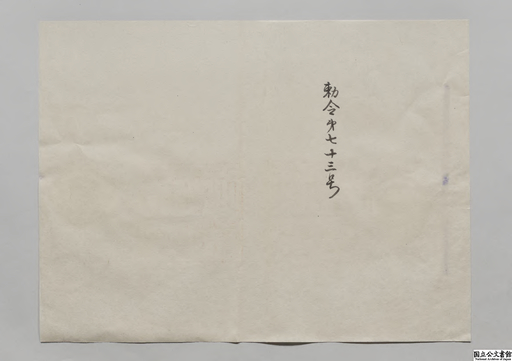 勅令第七十三号
国立公文書館
National Archives of Japan